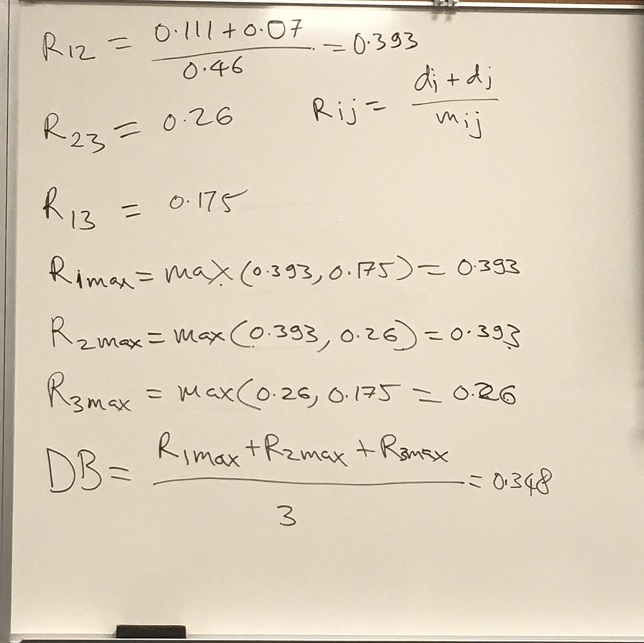 R12 = (0.111 + 0.07) / 0.46 = 0.393
R23 = 0.26
Rij = (di + dj) / mij
R13 = 0.175
R1max = max(0.393, 0.175) = 0.393
R2max = max(0.393, 0.26) = 0.393
R3max = max(0.26, 0.175 = 0.26
DB = (R1max + R2max + R3max) / 3 = 0.348